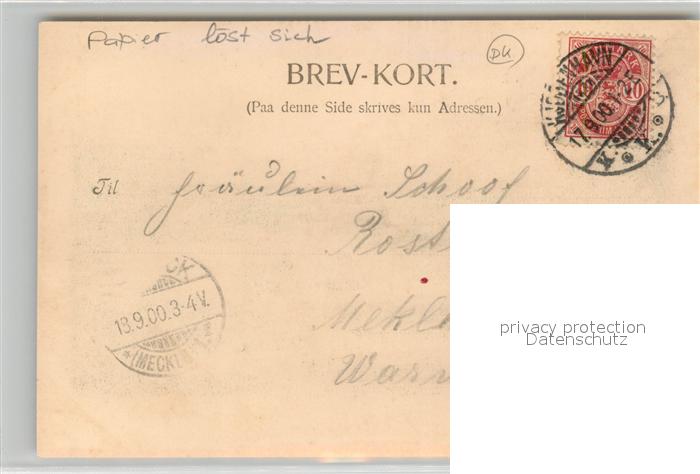 Papier löst sich
DK
BREV-KORT.
(Paa denne Side skrives kun Adressen.)
KJØBENHAVN
17.9.00
K
10 10
Til Fräulein Schoof
Rost
13.9.00.3-4V.
(MECKL
Mekl
War
privacy protection
Datenschutz